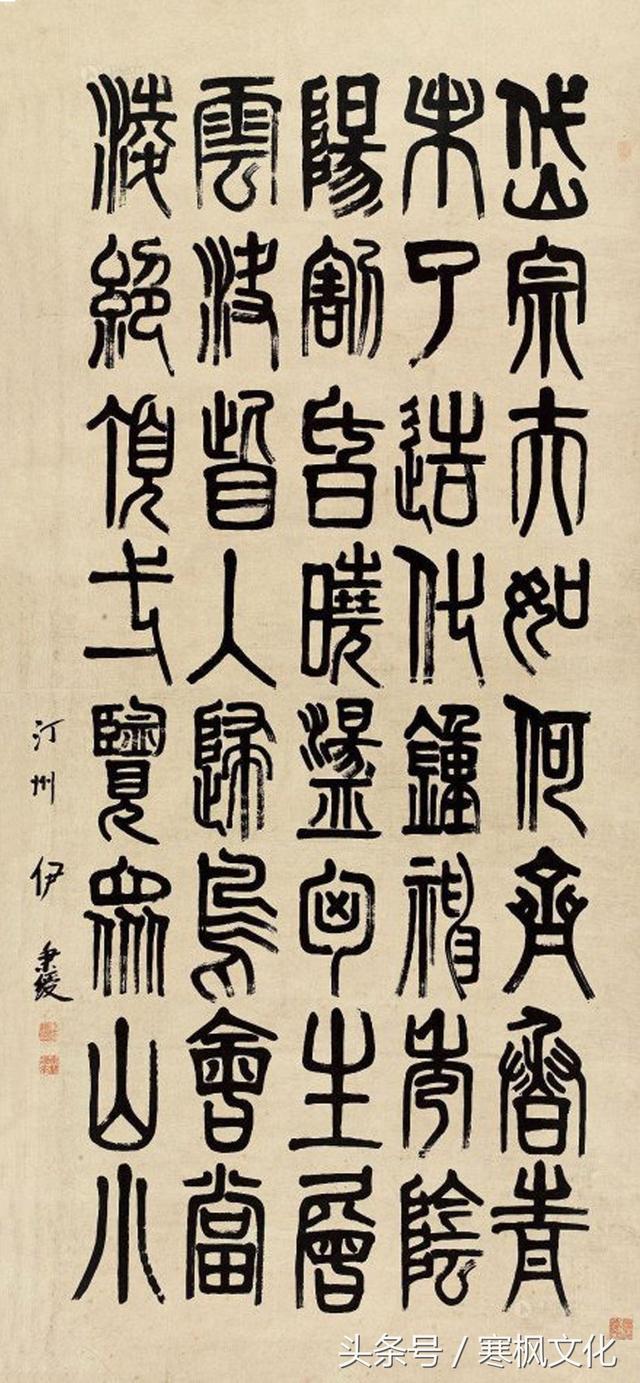 岱宗夫如何齊魯青
未了造化鐘神秀陰
陽割昏曉盪匈生層
雲決眥入歸鳥會當
淩絕頂弌覽眾山小
汀州伊秉綬
头条号 / 寒枫文化